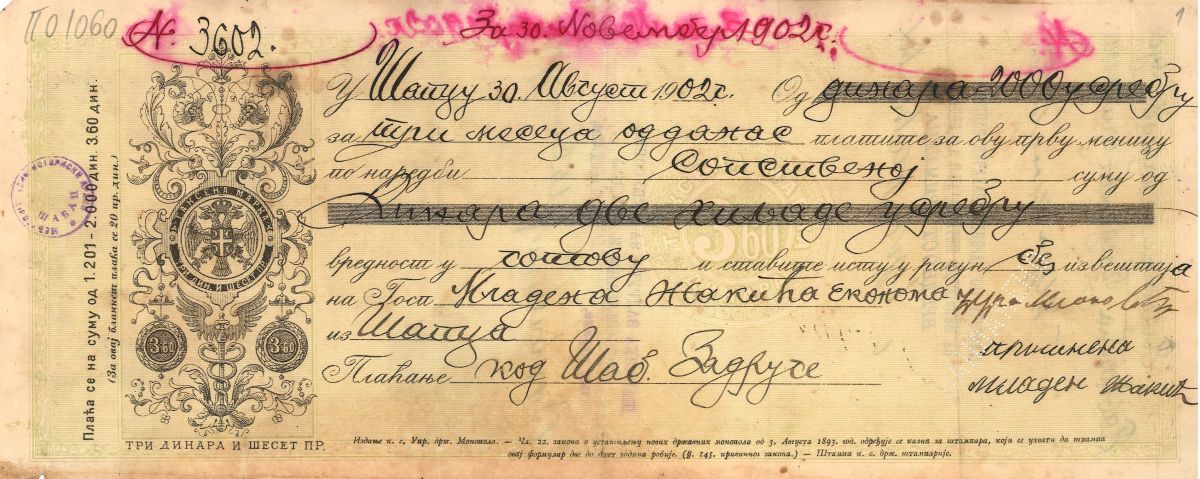 ПО1060
№. 3602.
За 30. Новембар 1902 г.
1
У Шапцу 30. Август 1902 г. Од динара 2000 у сребру
за три месеца од данас платите за ову прву меницу
по наредби Сопственој суму од
Динара две хиљаде у сребру
вредност у готову и ставите исту у рачун без извештаја
на Госп Младена Жакића економа
из Шапца
Плаћање код Шаб. Задруге
примљена
Младен Жакић
Плаћа се на суму од 11.201 - 2.000 дин. 3.60 дин.
(За овај бланкет плаћа се 20 пр. дин.)
ТАКСЕНА МАРКА
3·60
3·60
ТРИ ДИНАРА И ШЕСЕТ ПР.
ШАБАЦ
Издање к. с. Упр. држ. Монопола. — Чл. 22. закона о установљењу нових државних монопола од 3. Августа 1893. год. одређује се казна за штампара, који се ухвати да штампа
овај формулар две до десет година робије. (§. 145. кривичног закона.) — Штампа к. с. држ. штампарије.